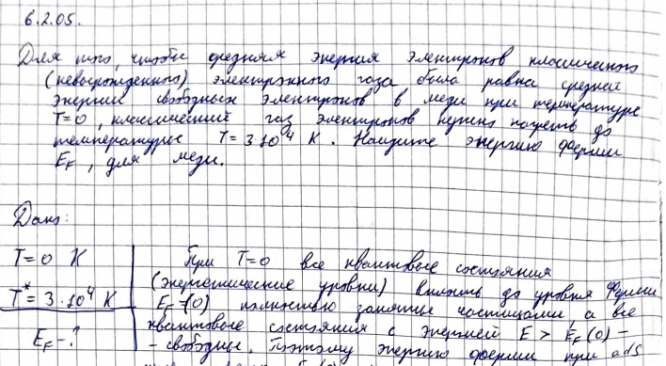 6.2.05.
Для того, чтобы средняя энергия электронов классического
(невырожденного) электронного газа была равна средней
энергии свободных электронов в меди при температуре
T=0, классический газ электронов нужно нагреть до
температуры T = 3·10⁴ К. Найдите энергию ферми
E_F, для меди.
Дано:
T = 0 К
T* = 3·10⁴ К
E_F - ?
При T=0 все квантовые состояния
(энергетические уровни) вплоть до уровня Ферми
E_F (0) полностью заняты частицами, а все
квантовые состояния с энергией E > E_F (0) –
– свободны. Поэтому энергию ферми при абс